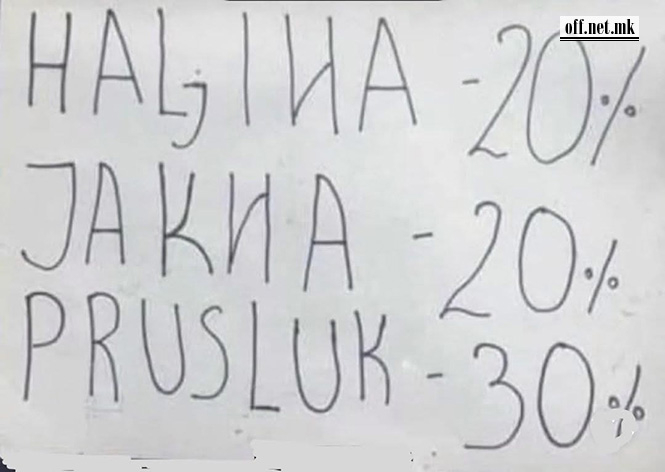 off.net.mk
HALjIИA -20%
JAKИA - 20%
PRUSLUK - 30%